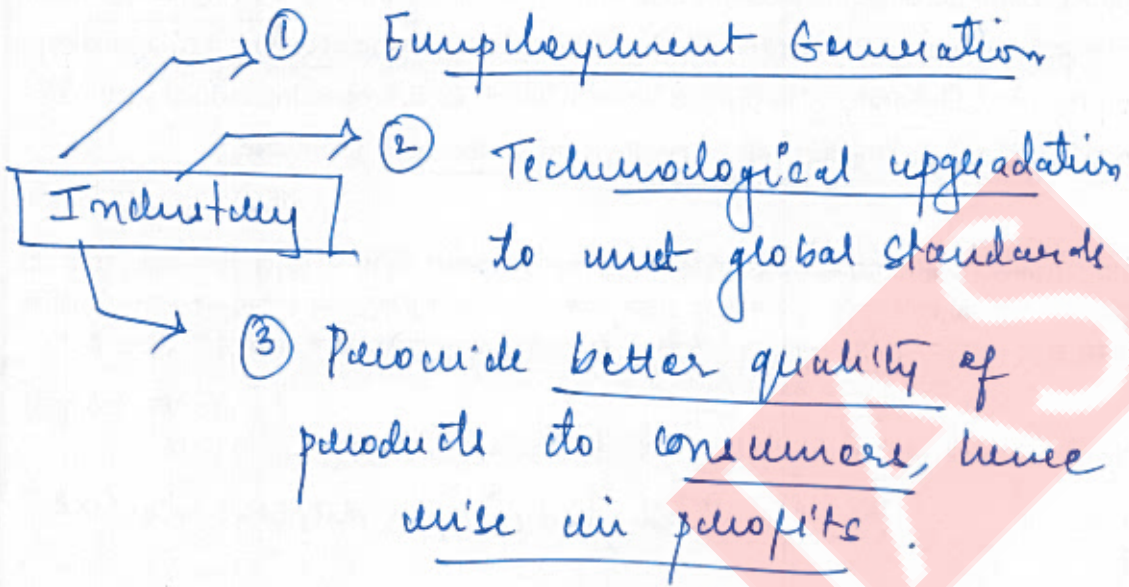 ① Employment Generation
② Technological upgradation
Industry
to meet global standards
③ Provide better quality of
products to consumers, hence
rise in profits.
IAS